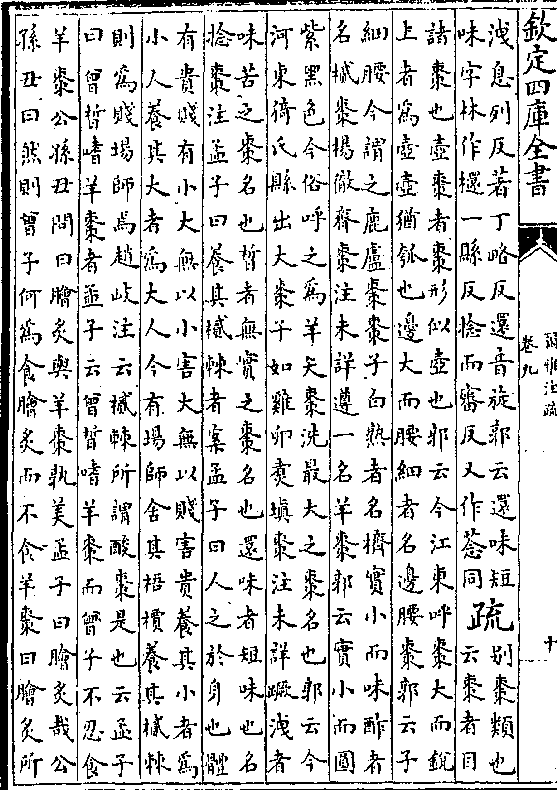 欽定四庫全書
爾雅注疏
卷九
十
洩息列反著丁略反還音旋郭云還味短
味字林作檈一縣反捻而審反又作荵同
疏
别棗類也
云棗者目
諸棗也壺棗者棗形似壺也郭云今江東呼棗大而銳
上者爲壺壺猶瓠也邊大而腰細者名邊腰棗郭云子
細腰今謂之鹿盧棗棗子白熟者名擠實小而味酢者
名樲棗楊徹齊棗注未詳遵一名羊棗郭云實小而圓
紫黑色今俗呼之爲羊矢棗洗最大之棗名也郭云今
河東猗氏縣出大棗子如雞卵煑塡棗注未詳蹶洩者
味苦之棗名也晳者無實之棗名也還味者短味也名
捻棗注孟子曰養其樲棘者案孟子曰人之於身也體
有貴賤有小大無以小害大無以賤害貴養其小者爲
小人養其大者爲大人今有場師舍其梧檟養其樲棘
則爲賤場師焉趙岐注云樲棘所謂酸棗是也云孟子
曰曾晳嗜羊棗者孟子云曾晳嗜羊棗而曾子不忍食
羊棗公孫丑問曰膾炙與羊棗孰美孟子曰膾炙哉公
孫丑曰然則曾子何爲食膾炙而不食羊棗曰膾炙所